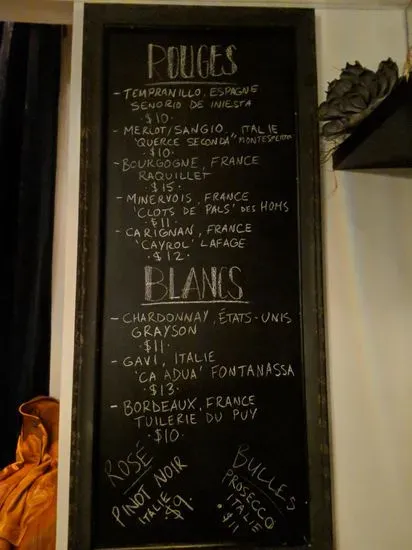 ROUGES
- TEMPRANILLO, ESPAGNE
SENORIO DE INIESTA
· $10 ·
- MERLOT/SANGIO, ITALIE
'QUERCE SECONDA" MONTESPERTO
· $10 ·
- BOURGOGNE, FRANCE
RAQUILLET
· $15 ·
- MINERVOIS, FRANCE
'CLOTS DE PALS' DES HOMS
· $11 ·
- CARIGNAN, FRANCE
'CAYROL' LAFAGE
· $12 ·
BLANCS
- CHARDONNAY, ÉTATS-UNIS
GRAYSON
· $11 ·
- GAVI, ITALIE
'CA ADUA' FONTANASSA
· $13 ·
- BORDEAUX, FRANCE
TUILERIE DU PUY
· $10 ·
ROSÉ
PINOT NOIR
ITALIE
$9 ·
BULLES
PROSECCO
ITALIE
· $11 ·